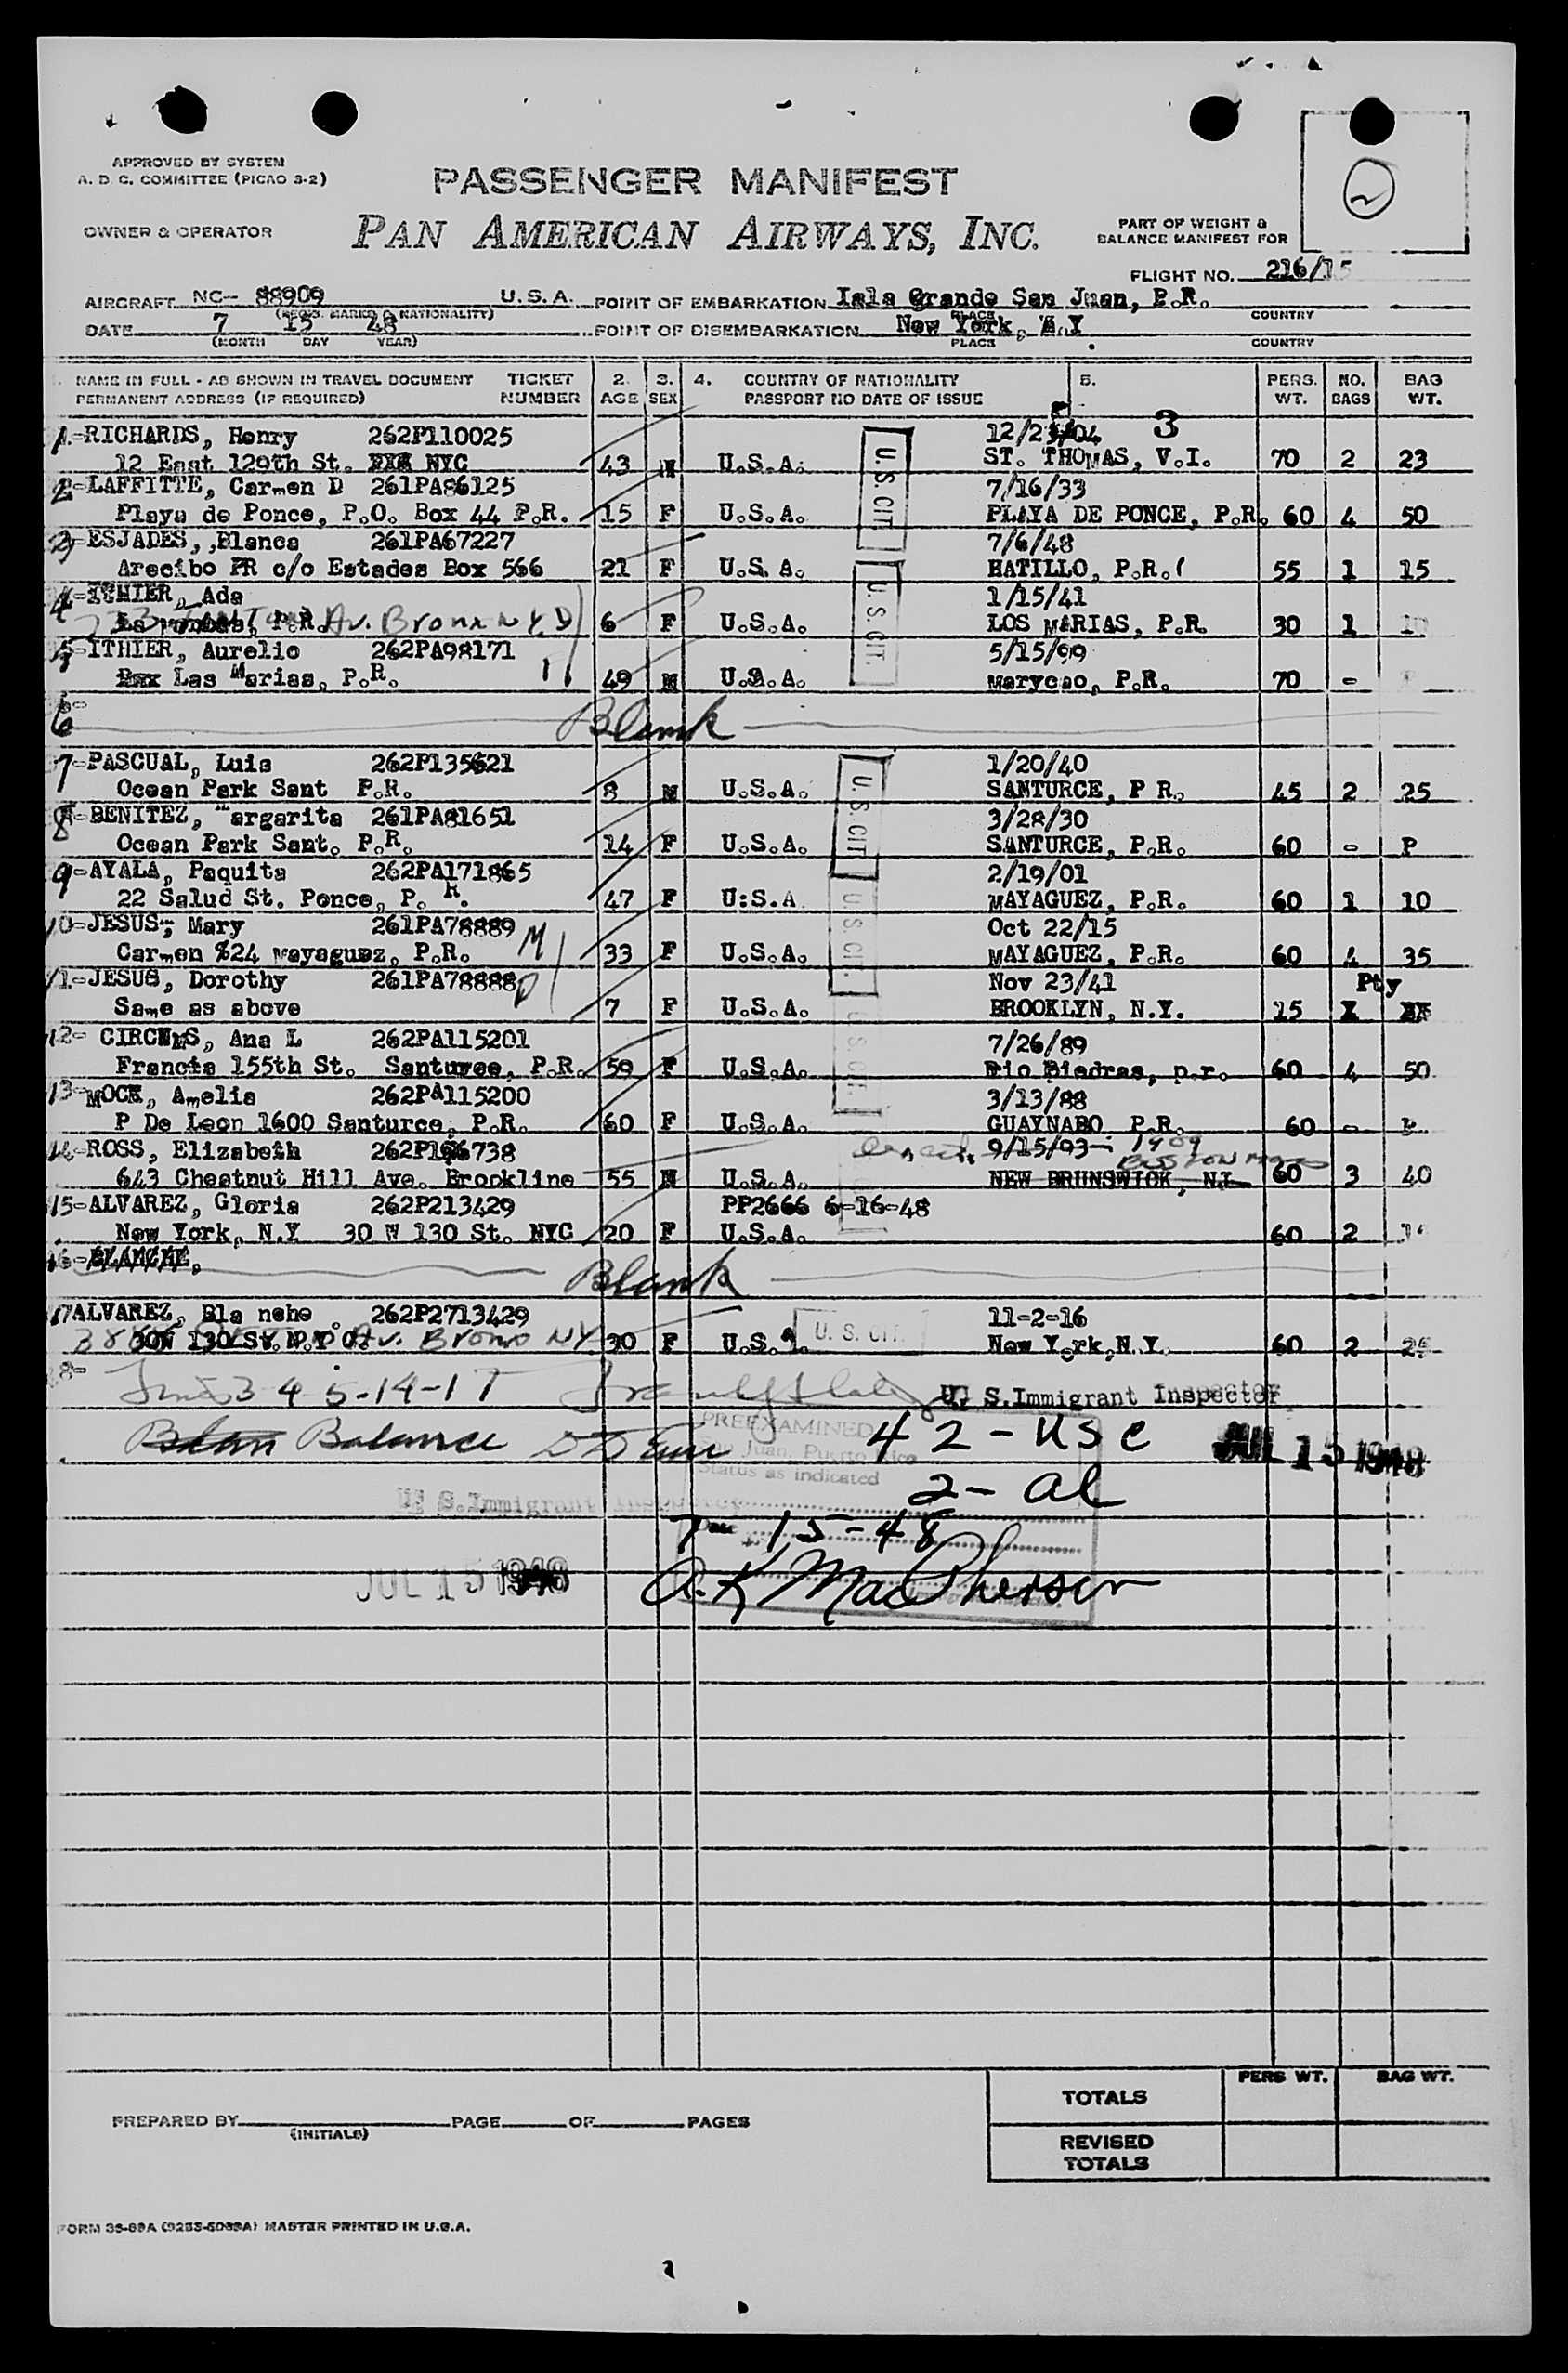 APPROVED BY SYSTEM
A. D. C. COMMITTEE (PICAO 3-2)
PASSENGER MANIFEST
2
OWNER & OPERATOR
PAN AMERICAN AIRWAYS, INC.
PART OF WEIGHT &
BALANCE MANIFEST FOR
FLIGHT NO. 216/15
AIRCRAFT NC- 88909 U.S.A. POINT OF EMBARKATION Isla Grande San Juan, P.R.
(REGIS. MARKS & NATIONALITY) PLACE COUNTRY
DATE 7 15 48 POINT OF DISEMBARKATION New York, N.Y
(MONTH DAY YEAR) PLACE COUNTRY
1. NAME IN FULL - AS SHOWN IN TRAVEL DOCUMENT TICKET 2. 3. 4. COUNTRY OF NATIONALITY 5. PERS. NO. BAG
PERMANENT ADDRESS (IF REQUIRED) NUMBER AGE SEX PASSPORT NO DATE OF ISSUE WT. BAGS WT.
1-RICHARDS, Henry 262P110025 12/23/04 3
12 East 129th St. NYC 43 M U.S.A. ST. THOMAS, V.I. 70 2 23
2-LAFFITTE, Carmen D 261PA86125 7/16/33
Playa de Ponce, P.O. Box 44 P.R. 15 F U.S.A. PLAYA DE PONCE, P.R. 60 4 50
3-ESJADES, ,Blanca 261PA67227 7/6/48
Arecibo PR c/o Estades Box 566 21 F U.S.A. HATILLO, P.R. 55 1 15
4-ITHIER, Ada 1/15/41
Av. Bronx N.Y. D 6 F U.S.A. LOS MARIAS, P.R. 30 1 10
5-ITHIER, Aurelio 262PA98171 5/15/99
Las Marias, P.R. 49 M U.S.A. Marycao, P.R. 70 -
6- Blank
7-PASCUAL, Luis 262P135621 1/20/40
Ocean Park Sant P.R. 8 M U.S.A. SANTURCE, P R. 45 2 25
8-BENITEZ, Margarita 261PA81651 3/28/30
Ocean Park Sant. P.R. 14 F U.S.A. SANTURCE, P.R. 60 - P
9-AYALA, Paquita 262PA171865 2/19/01
22 Salud St. Ponce, P. R. 47 F U:S.A MAYAGUEZ, P.R. 60 1 10
10-JESUS; Mary 261PA78889 M Oct 22/15
Carmen %24 Mayaguez, P.R. 33 F U.S.A. MAYAGUEZ, P.R. 60 4 35
11-JESUS, Dorothy 261PA78888 D Nov 23/41 Pty
Same as above 7 F U.S.A. BROOKLYN, N.Y. 15
12- CIRCNES, Ana L 262PA115201 7/26/89
Francia 155th St. Santurce, P.R. 59 F U.S.A. Rio Piedras, p.r. 60 4 50
13-MOCK, Amelia 262PA115200 3/13/88
P De Leon 1600 Santurce, P.R. 60 F U.S.A. GUAYNABO P.R. 60 -
14-ROSS, Elizabeth 262P196738 9/15/93- 1909
643 Chestnut Hill Ave. Brookline 55 M U.S.A. NEW BRUNSWICK, NJ BOSTON MASS 60 3 40
15-ALVAREZ, Gloria 262P213429 PP2666 6-16-48
New York, N.Y 30 W 130 St. NYC 20 F U.S.A. 60 2
16-BLANCHE,
Blank
17ALVAREZ, Bla nche 262P2713429 11-2-16
30W 130 St. N.Y C. Av. Bronx NY 30 F U.S.A. New York,N.Y. 60 2
U. S. CIT.
U. S. CIT.
U. S. CIT.
U. S. CIT.
U. S. CIT.
U. S. CIT.
18-
3 4 5-14-17 U. S.Immigrant Inspector
Balance
PREEXAMINED
San Juan, Puerto Rico
Status as indicated
42-USC JUL 15 1948
2-al
U. S.Immigrant Inspector
Date 7-15-48
JUL 15 1948
A.K. MacPherson
TOTALS PERS WT. BAG WT.
PREPARED BY PAGE OF PAGES
(INITIALS)
REVISED
TOTALS
FORM 35-89A (9255-5089A) MASTER PRINTED IN U.S.A.